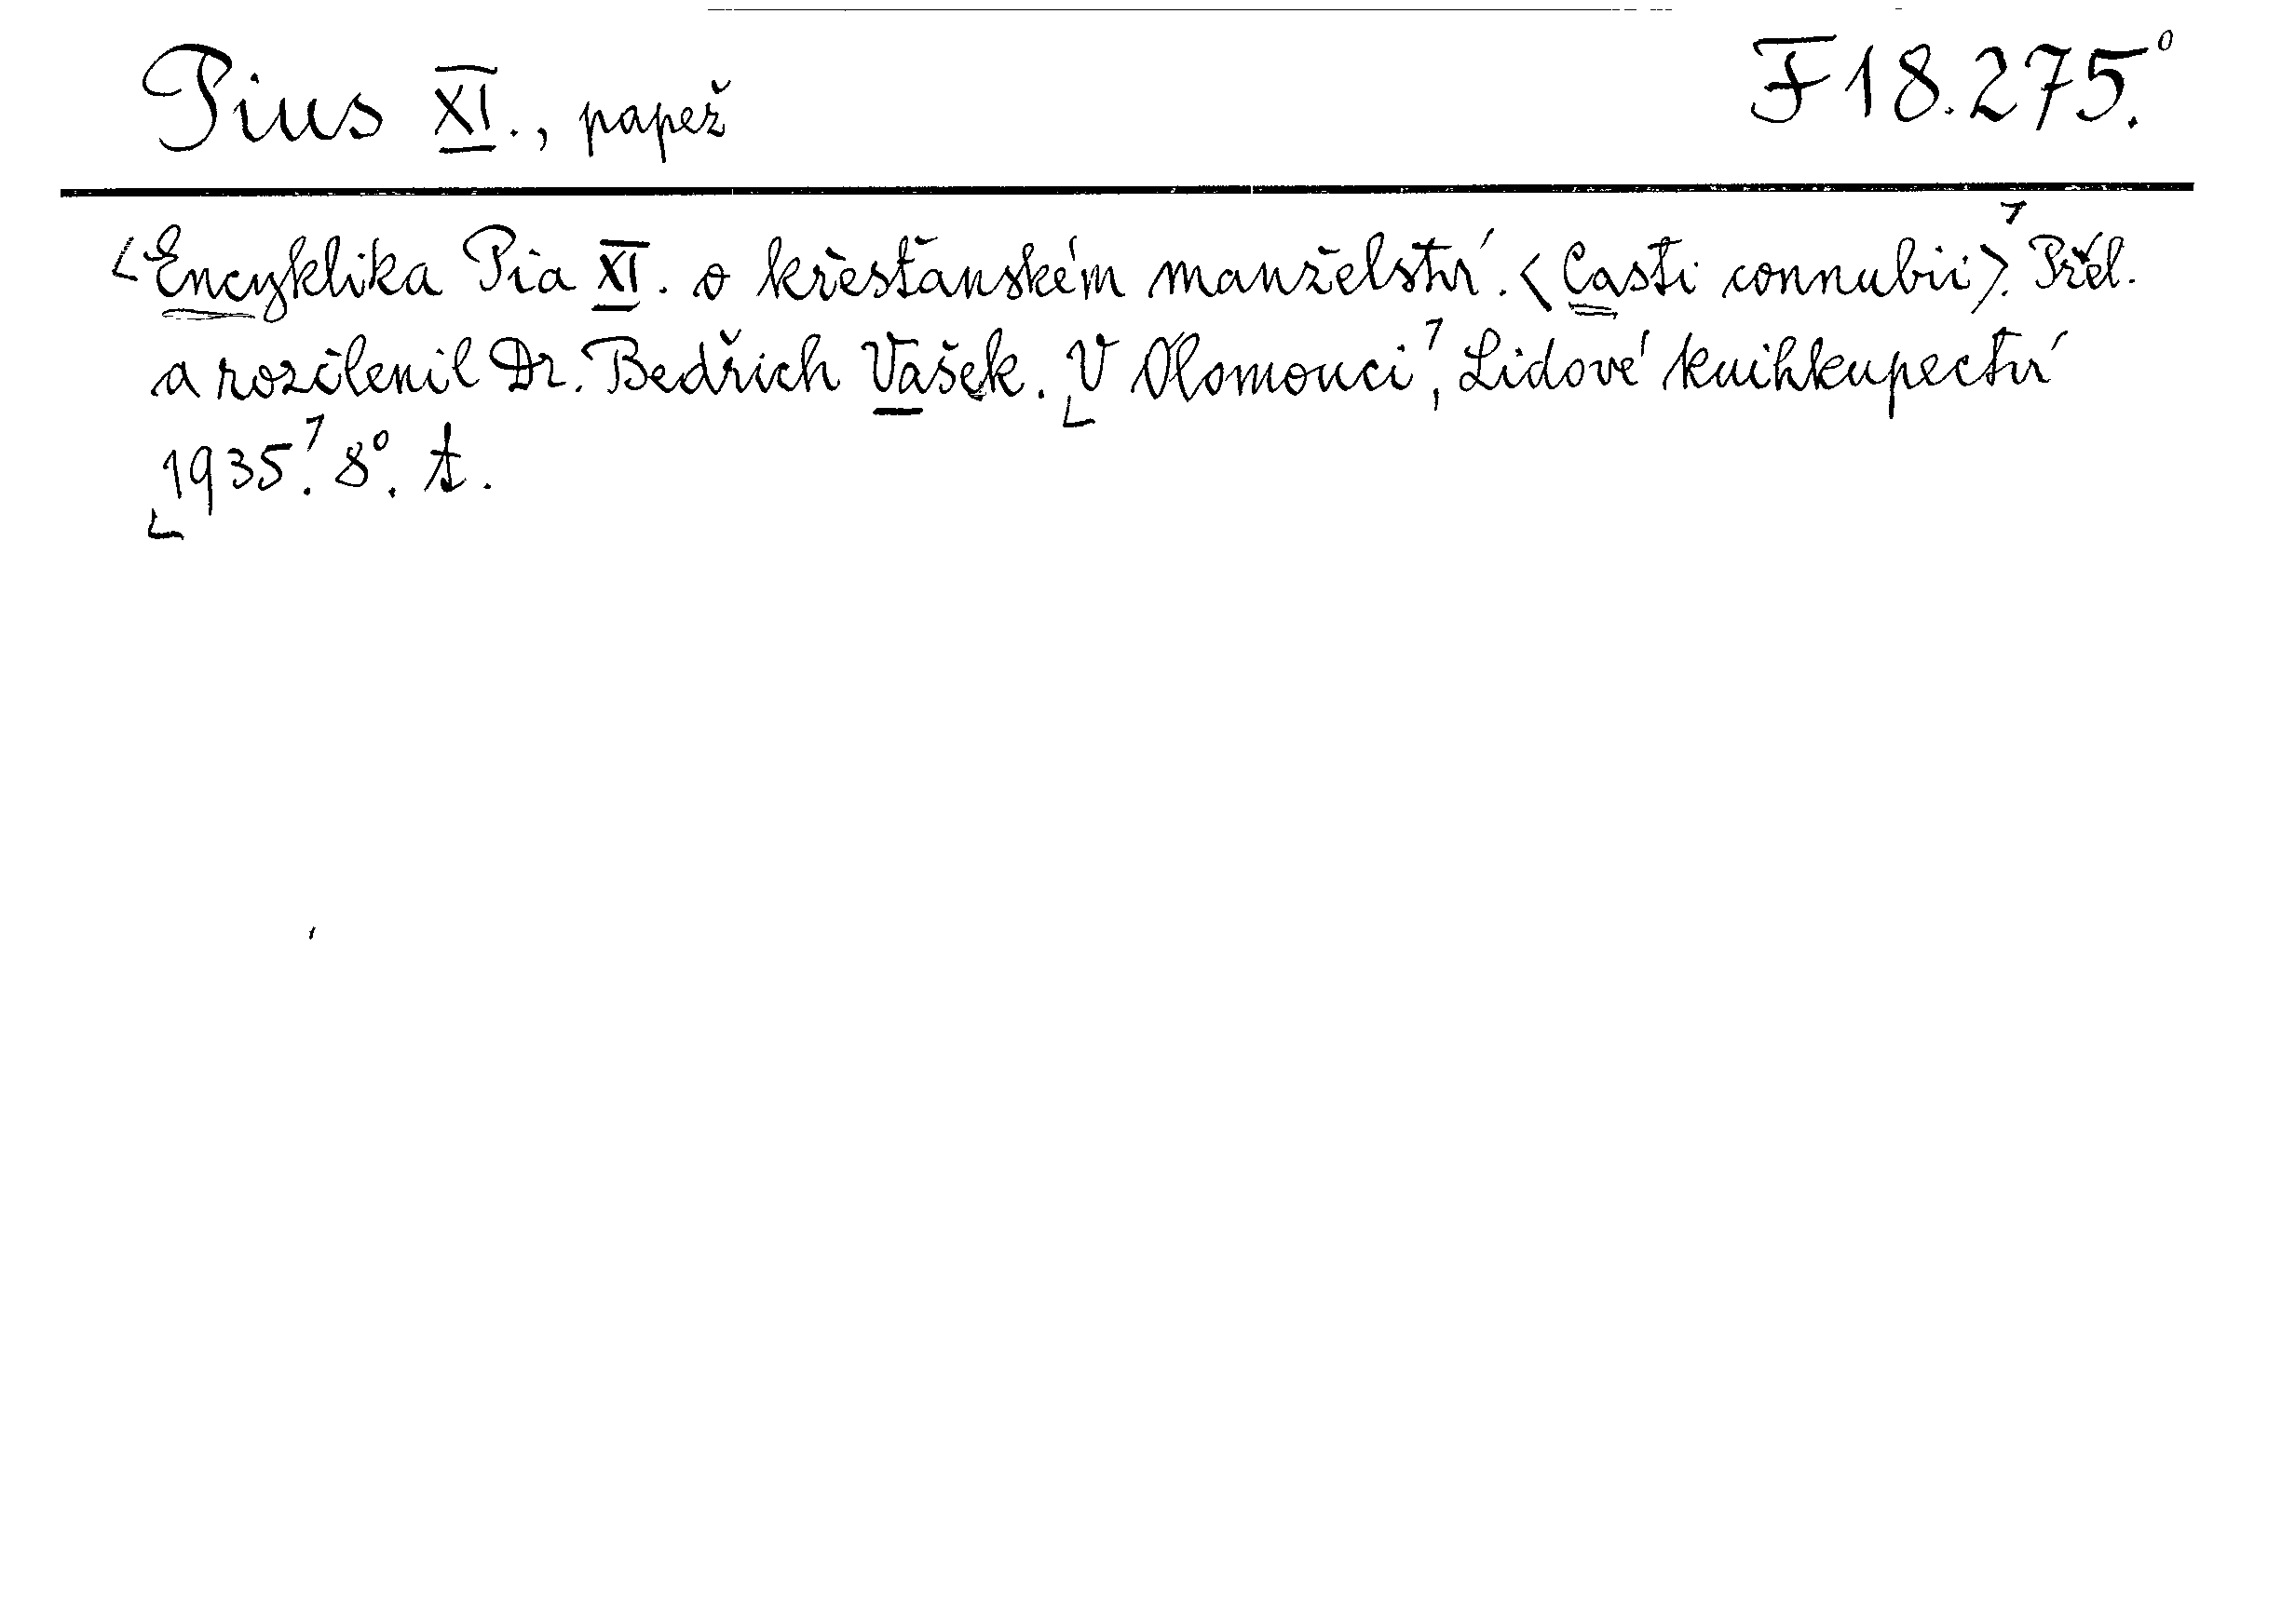 Pius XI., papež F 18.275.°
<Encyklika Pia XI. o křesťanském manželství. <Casti connubii>.⌝ Přel.
a rozčlenil Dr. Bedřich Vašek. ⌞V Olomouci⌝, Lidové knihkupectví
⌞1935.⌝ 8°. t.